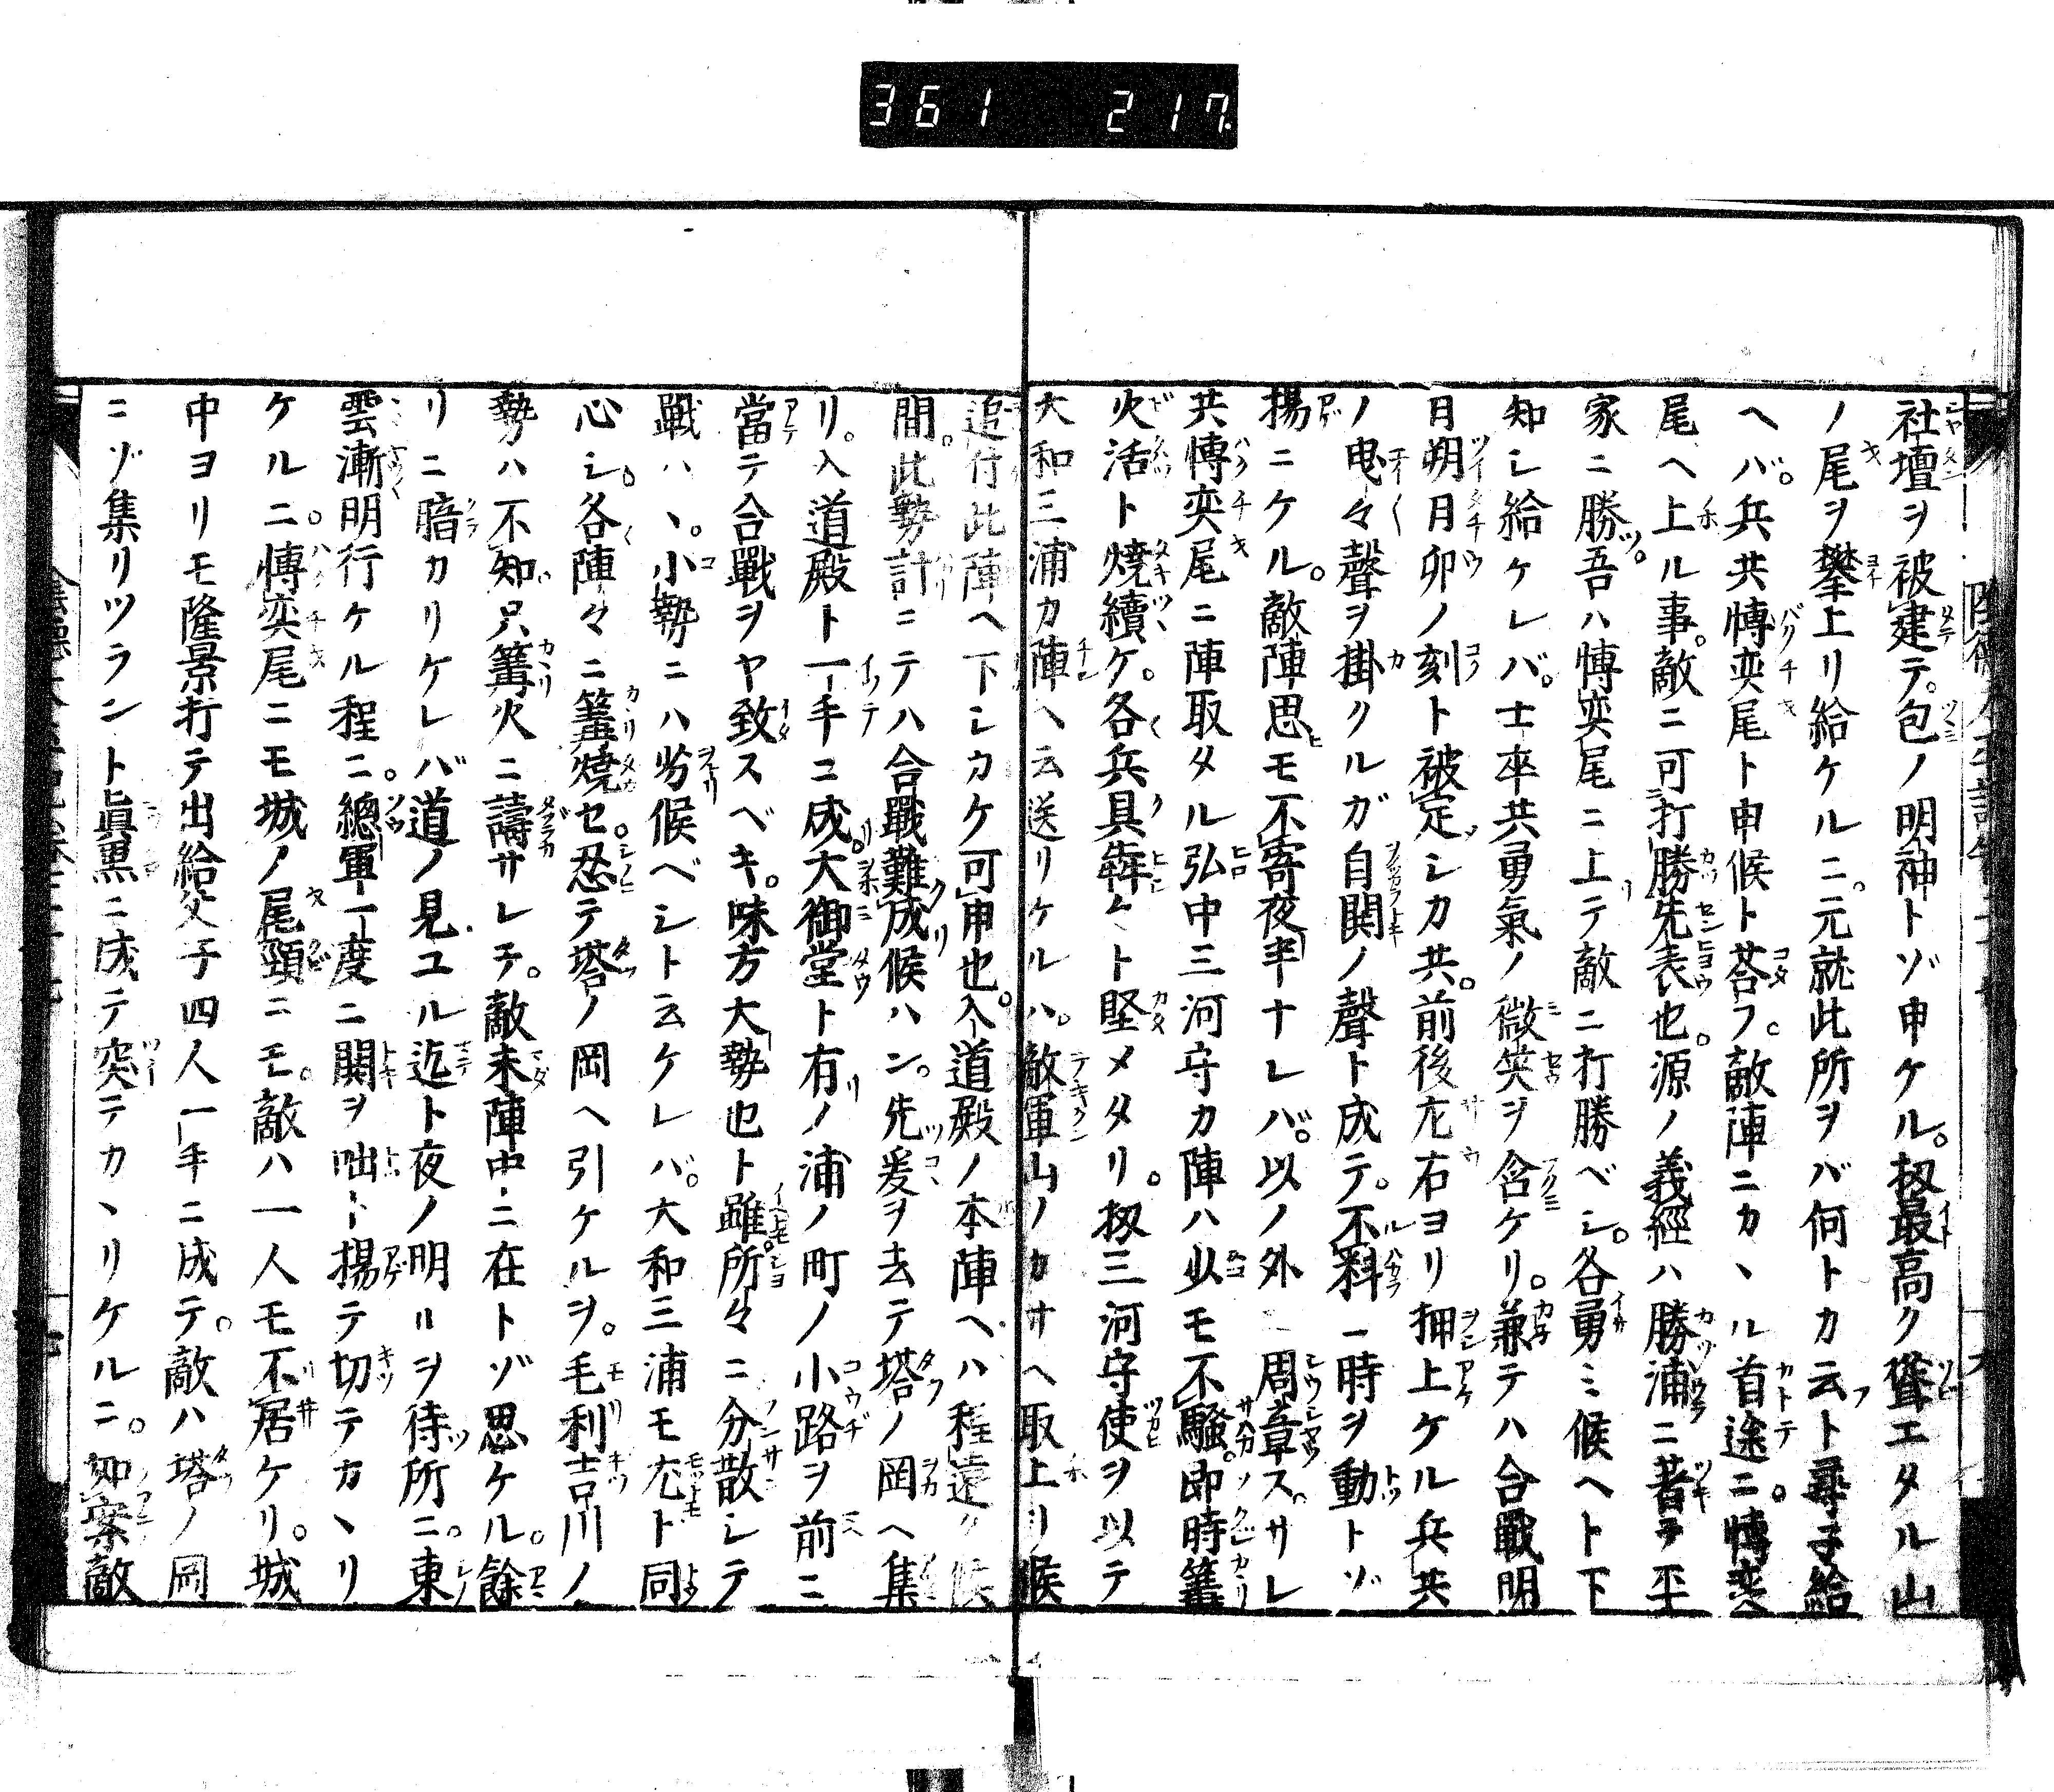 361 217
社壇ヲ被建テ。包ノ明神トゾ申ケル。扨最高ク聳エタル山
ノ尾ヲ攀上リ給ケルニ。元就此所ヲバ何トカ云ト尋子給
ヘバ。兵共博奕尾ト申候ト荅フ。敵陣ニカヽル首途ニ。博奕
尾ヘ上ル事。敵ニ可打勝先表也。源ノ義經ハ勝浦ニ著テ平
家ニ勝ツ。吾ハ博奕尾ニ上テ敵ニ打勝ベシ。各勇ミ候ヘト下
知シ給ケレバ。士卒共勇氣ノ微笑ヲ含ケリ。兼テハ合戰明
日朔日卯ノ刻ト被定シカ共。前後左右ヨリ押上ケル兵共
ノ曳々聲ヲ掛クルガ自関ノ聲ト成テ。不料一時ヲ動トゾ
揚ニケル。敵陣思モ不寄夜半ナレバ。以ノ外ニ周章ス。サレ
共博奕尾ニ陣取タル弘中三河守カ陣ハ少モ不騷。即時篝
火活ト燒續ケ。各兵具犇々ト堅メタリ。扨三河守使ヲ以テ
大和三浦カ陣ヘ云送リケルハ。敵軍山ノカサヘ取上リ候
追付此陣ヘ下シカケ可申也。入道殿ノ本陣ヘハ程遠ク候
間。此勢計ニテハ合戰難成候ハン。先爰ヲ去テ塔ノ岡ヘ集
リ。入道殿ト一手コ成。大御堂ト有ノ浦ノ町ノ小路ヲ前ニ
當テ合戰ヲヤ致スベキ。味方大勢也ト雖。所々ニ分散シテ
戰ハヽ。小勢ニハ劣候ベシト云ケレバ。大和三浦モ尤ト同
心シ。各陣々ニ篝燒セ。忍テ塔ノ岡ヘ引ケルヲ。毛利吉川ノ
勢ハ不知。只篝火ニ譸サレテ。敵未陣中ニ在トゾ思ケル。餘
リニ暗カリケレバ道ノ見ユル迄ト夜ノ明ルヲ待所ニ。東
雲漸明行ケル程ニ。總軍一度ニ関ヲ咄ト揚テ切テカヽリ
ケルニ。博奕尾ニモ城ノ尾頸ニモ。敵ハ一人モ不居ケリ。城
中ヨリモ隆景打テ出給父子四人一手ニ成テ。敵ハ塔ノ岡
ニゾ集リツラント眞黒ニ成テ突テカヽリケルニ。如案敵